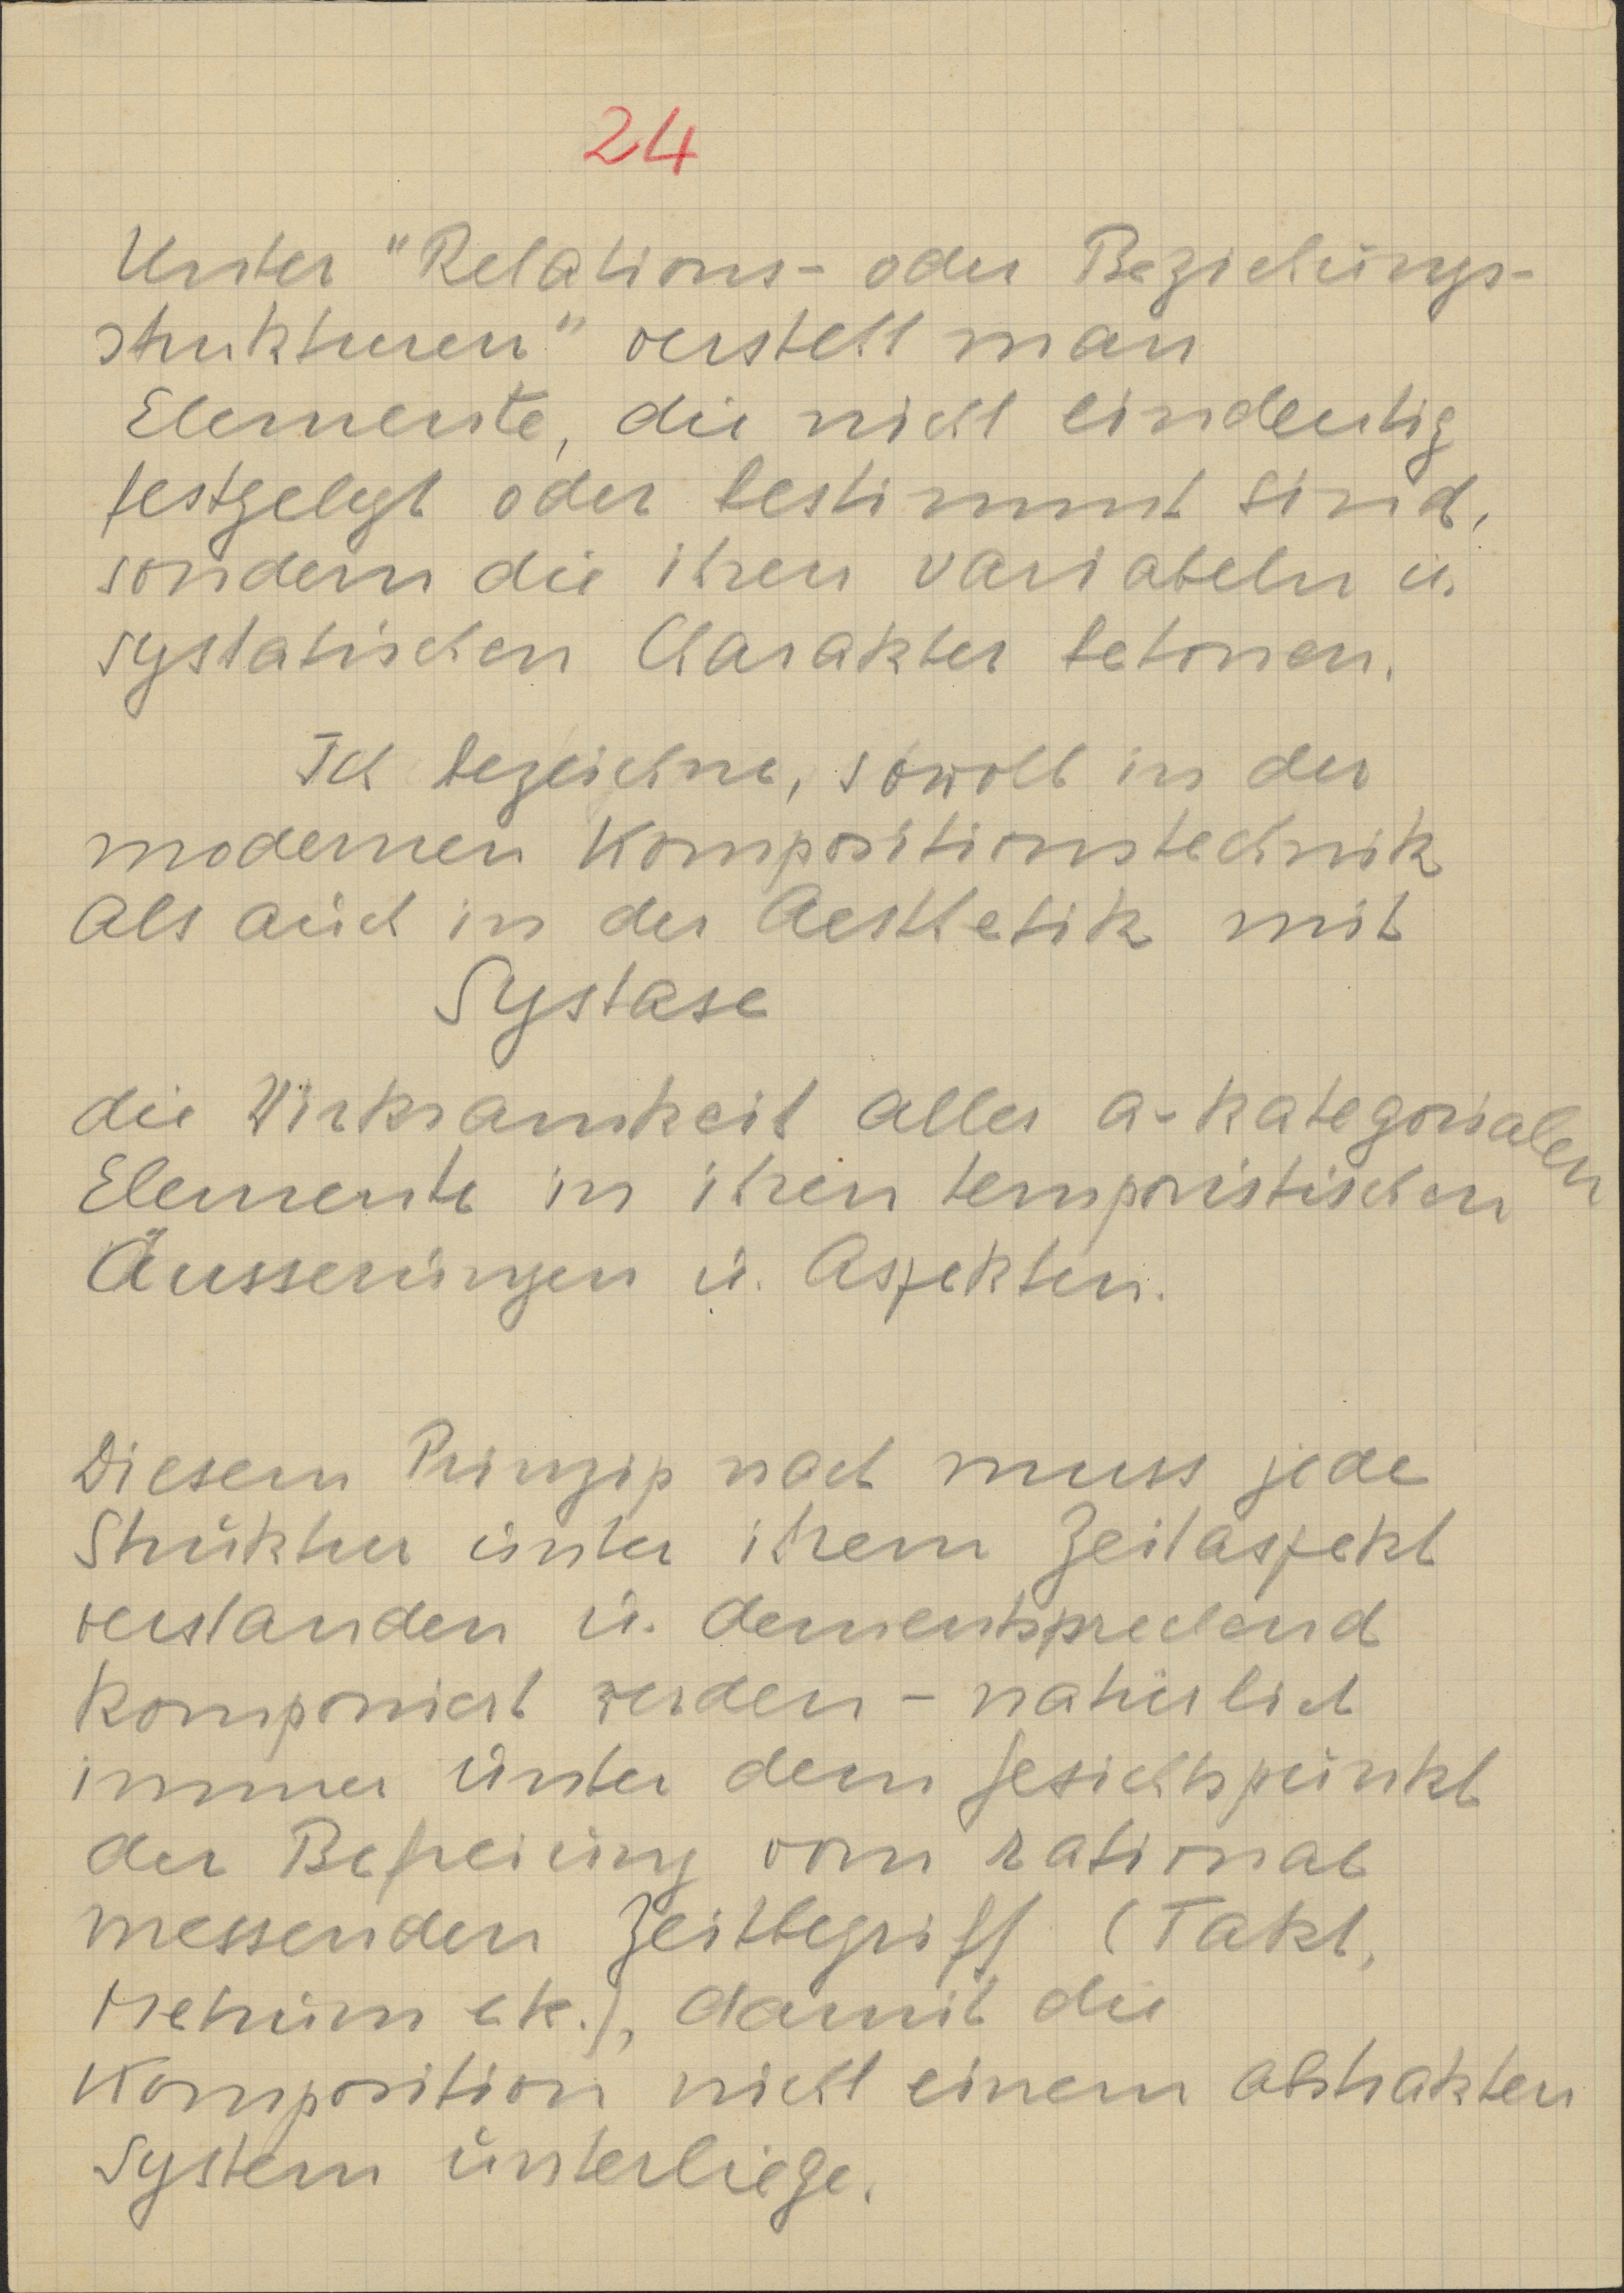 24
Unter "Relations- oder Beziehungs-
strukturen" versteht man
Elemente, die nicht eindeutig
festgelegt oder bestimmt sind,
sondern die ihren variabeln u.
systatischen Charakter betonen.
Ich bezeichne, sowohl in der
modernen Kompositionstechnik
als auch in der Aesthetik mit
Systase
die Wirksamkeit aller a-kategorialen
Elemente in ihren temporistischen
Äusserungen u. Aspekten.
Diesem Prinzip nach muss jede
Struktur unter ihrem Zeitaspekt
verstanden u. dementsprechend
komponiert werden - natürlich
immer unter dem Gesichtspunkt
der Befreiung vom rational
messenden Zeitbegriff (Takt,
Metrum etc.), damit die
Komposition nicht einem abstrakten
System unterliege.